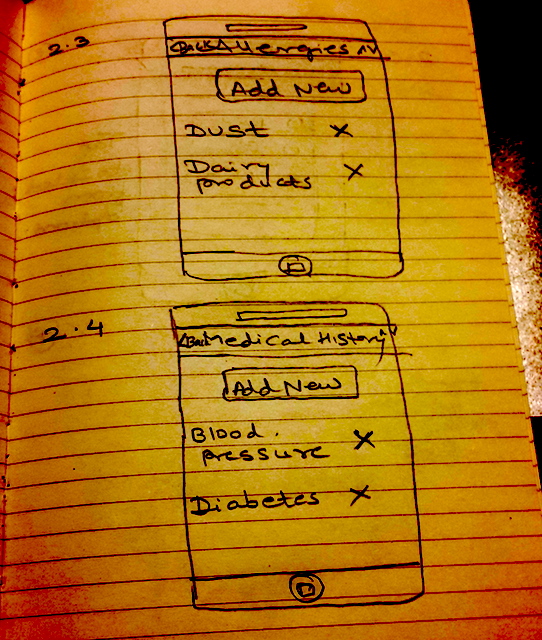 2.3
<Back Allergies ^v
Add New
Dust X
Dairy X
products
2.4
<Back Medical History ^v
Add New
Blood. X
pressure
Diabetes X